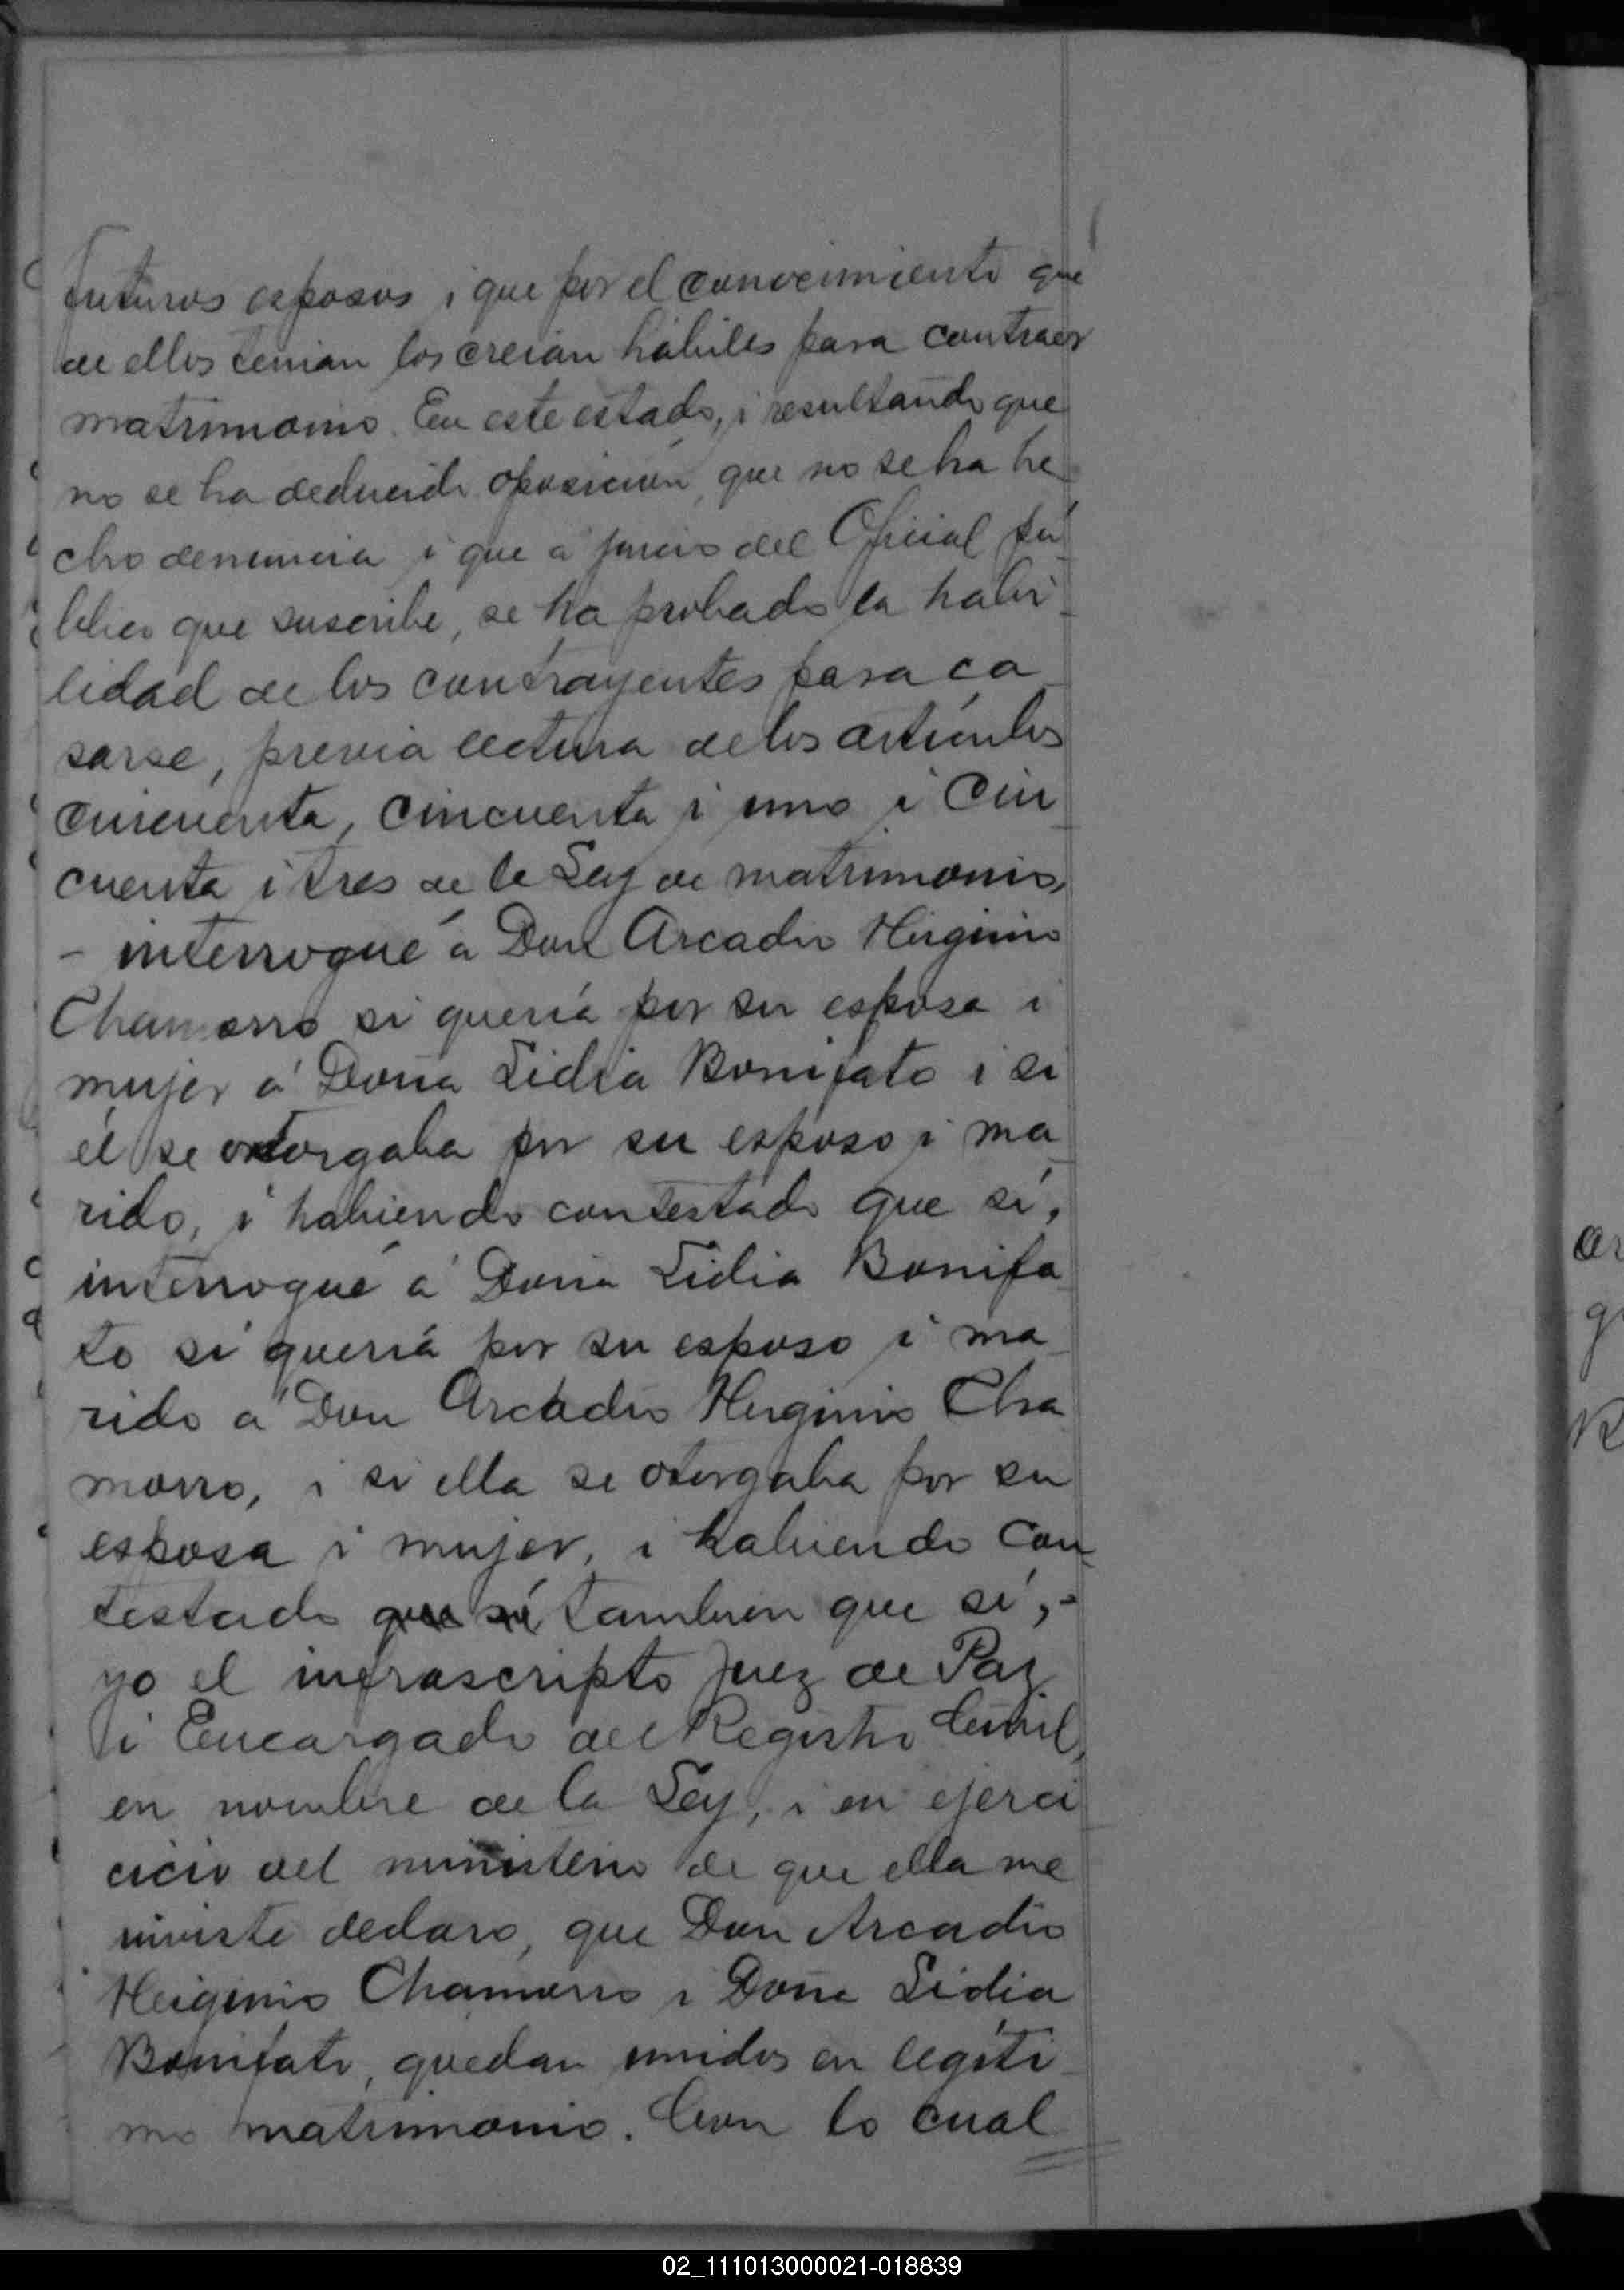 futuros esposos i que por el conocimiento que
de ellos tenian los creian hábiles para contraer
matrimonio. En este estado, i resultando que
no se ha deducido oposición, que no se ha he
cho denuncia i que á juicio del Oficial pú
blico que suscribe, se ha probado la habi-
lidad de los contrayentes para ca-
sarse, previa lectura de los artículos
cincuenta, cincuenta i uno i cin
cuenta i tres de la Ley de matrimonio,
- interrogué á Don Arcadio Higinio
Chamorro si quería por su esposa i
mujer á Doña Lidia Bonifato i si
él se otorgaba por su esposo i ma-
rido, i habiendo contestado que sí,
interrogué á Doña Lidia Bonifa
to si quería por su esposo i ma-
rido á Don Arcadio Higinio Cha
morro, i si ella se otorgaba por su
esposa i mujer, i habiendo con-
testado que sí tambien que sí,-
yo el infrascripto Juez de Paz
i Encargado del Registro Civil,
en nombre de la Ley, i en ejerci
cicio del ministerio de que ella me
inviste declaro, que Don Arcadio
Heiginio Chamorro i Doña Lidia
Bonifato, quedan unidos en legíti-
mo matrimonio. Con lo cual
ar
g
R
02_111013000021-018839